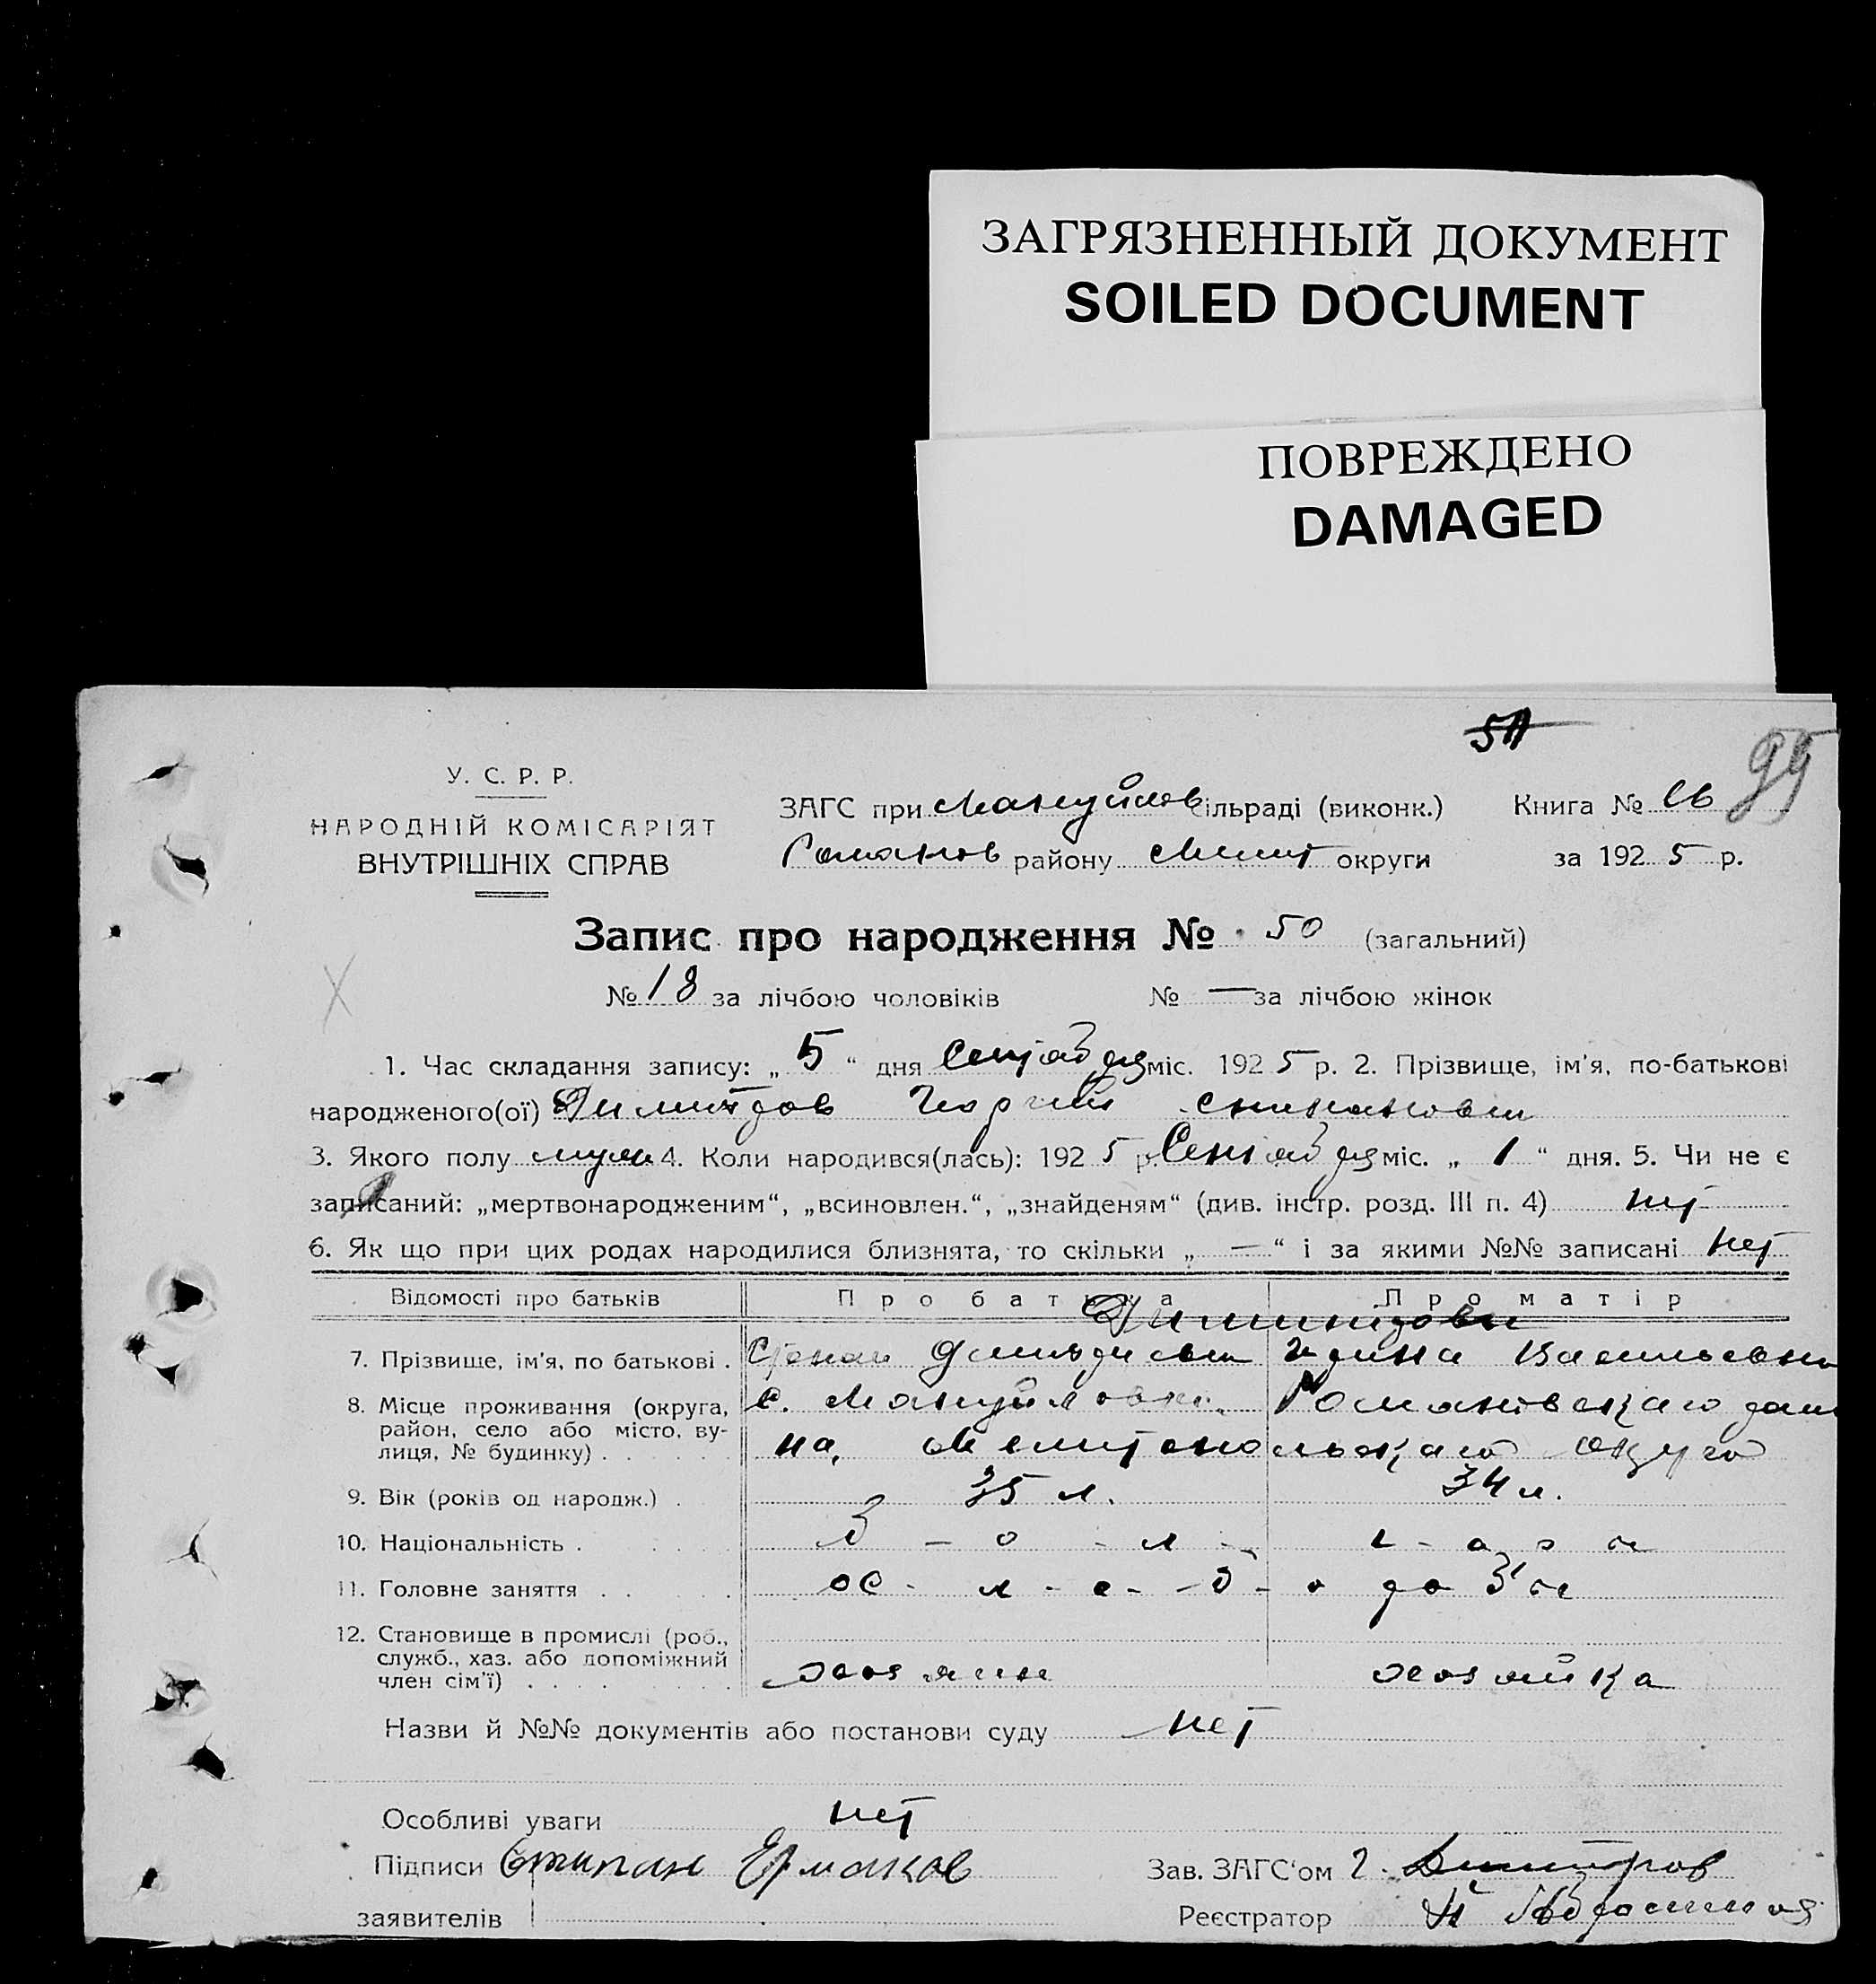 ЗАГРЯЗНЕННЫЙ ДОКУМЕНТ
SOILED DOCUMENT
ПОВРЕЖДЕНО
DAMAGED
У. С. Р. Р.
НАРОДНІЙ КОМІСАРІЯТ
ВНУТРІШНІХ СПРАВ
ЗАГС при Мануйлов сільраді (виконк.) Книга №
Романов району Мелит округи за 1925 р.
Запис про народження № 50 (загальний)
№ 18 за лічбою чоловіків № — за лічбою жінок
1. Час складання запису: „ 5 “ дня Сентября міс. 1925 р. 2. Прізвище, ім'я, по-батькові
народженого(ої) Димитров Георгий
3. Якого полу муж 4. Коли народився(лась): 1925 р. Сентября міс. „ 1 “ дня. 5. Чи не є
записаний: „мертвонародженим“, „всиновлен.“, „знайденям“ (див. інстр. розд. III п. 4) нет
6. Як що при цих родах народилися близнята, то скільки „ — “ і за якими №№ записані нет
Відомості про батьків Про батька Про матір
Димитровы
7. Прізвище, ім'я, по батькові . Степан Ирина Васильевна
8. Місце проживання (округа, район, село або місто, вулиця, № будинку) с. Мануйловка, Романовского райна, Мелитопольского округа
9. Вік (років од народж.) . 35 л. 34 л.
10. Національність . б - о - л - г - а р ы
11. Головне заняття . . х - л - е - б - о робы
12. Становище в промислі (роб., служб., хаз. або допоміжний член сім'ї) хозяин хозяйка
Назви й №№ документів або постанови суду нет
Особливі уваги нет
Підписи Степан Ермаков Зав. ЗАГС'ом Г. Димитров
заявителів Реєстратор